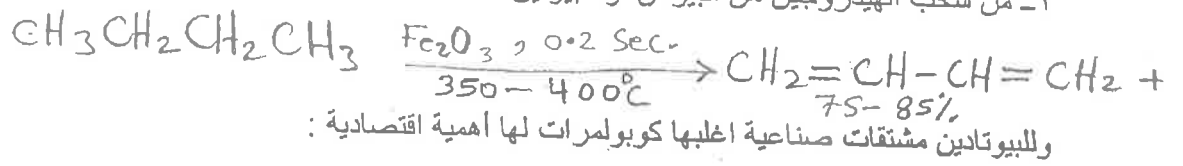 ١ - من سحب الهيدروجين من البيوتان
CH3CH2CH2CH3 Fe2O3 , 0.2 Sec. → CH2=CH-CH=CH2 +
350-400°C 75-85%
وللبيوتادين مشتقات صناعية اغلبها كوبولمرات لها أهمية اقتصادية :